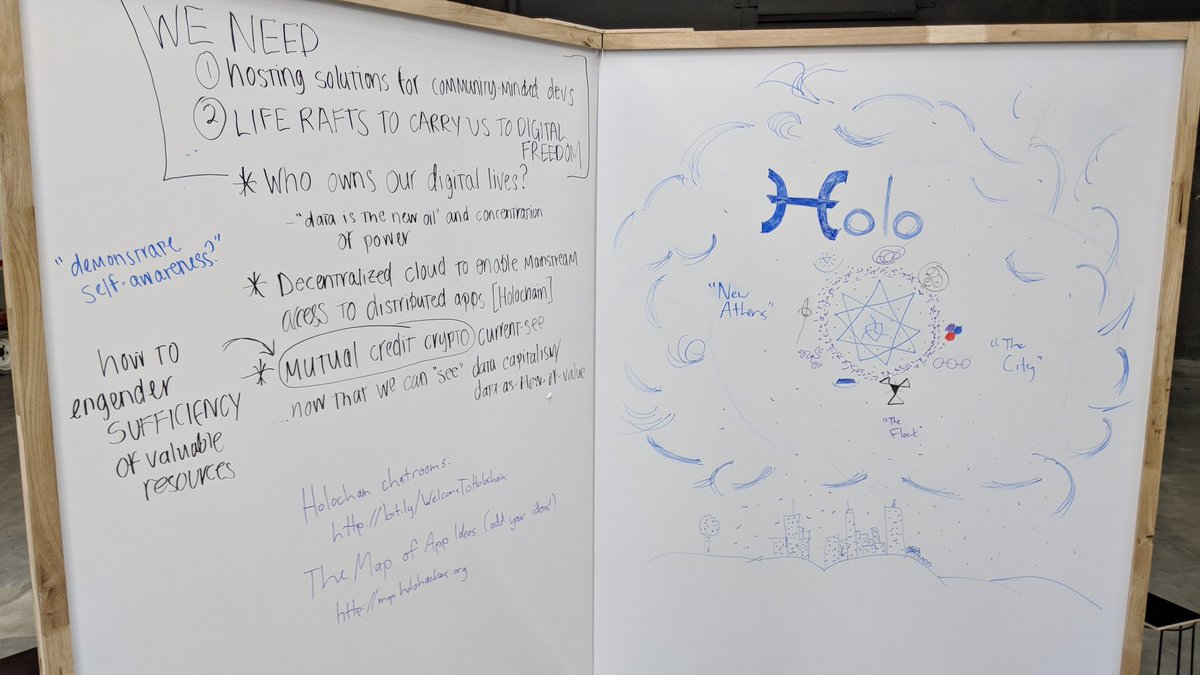 WE NEED
① hosting solutions for community-minded devs
② LIFE RAFTS TO CARRY US TO DIGITAL
FREEDOM
* Who owns our digital lives?
- "data is the new oil" and concentration
of power
"demonstrate
self-awareness?"
* Decentralized cloud to enable mainstream
access to distributed apps [Holochain]
how to
engender
SUFFICIENCY
of valuable
resources
* Mutual credit crypto current-see
...now that we can "see" data capitalism/
data-as-flow-of-value
Holochain chatrooms:
http://bit.ly/WelcomeToHolochain
The Map of App Ideas (add your ideas!)
http://map.holohackers.org
Holo
"New
Athens"
"The
City"
"The
Flock"